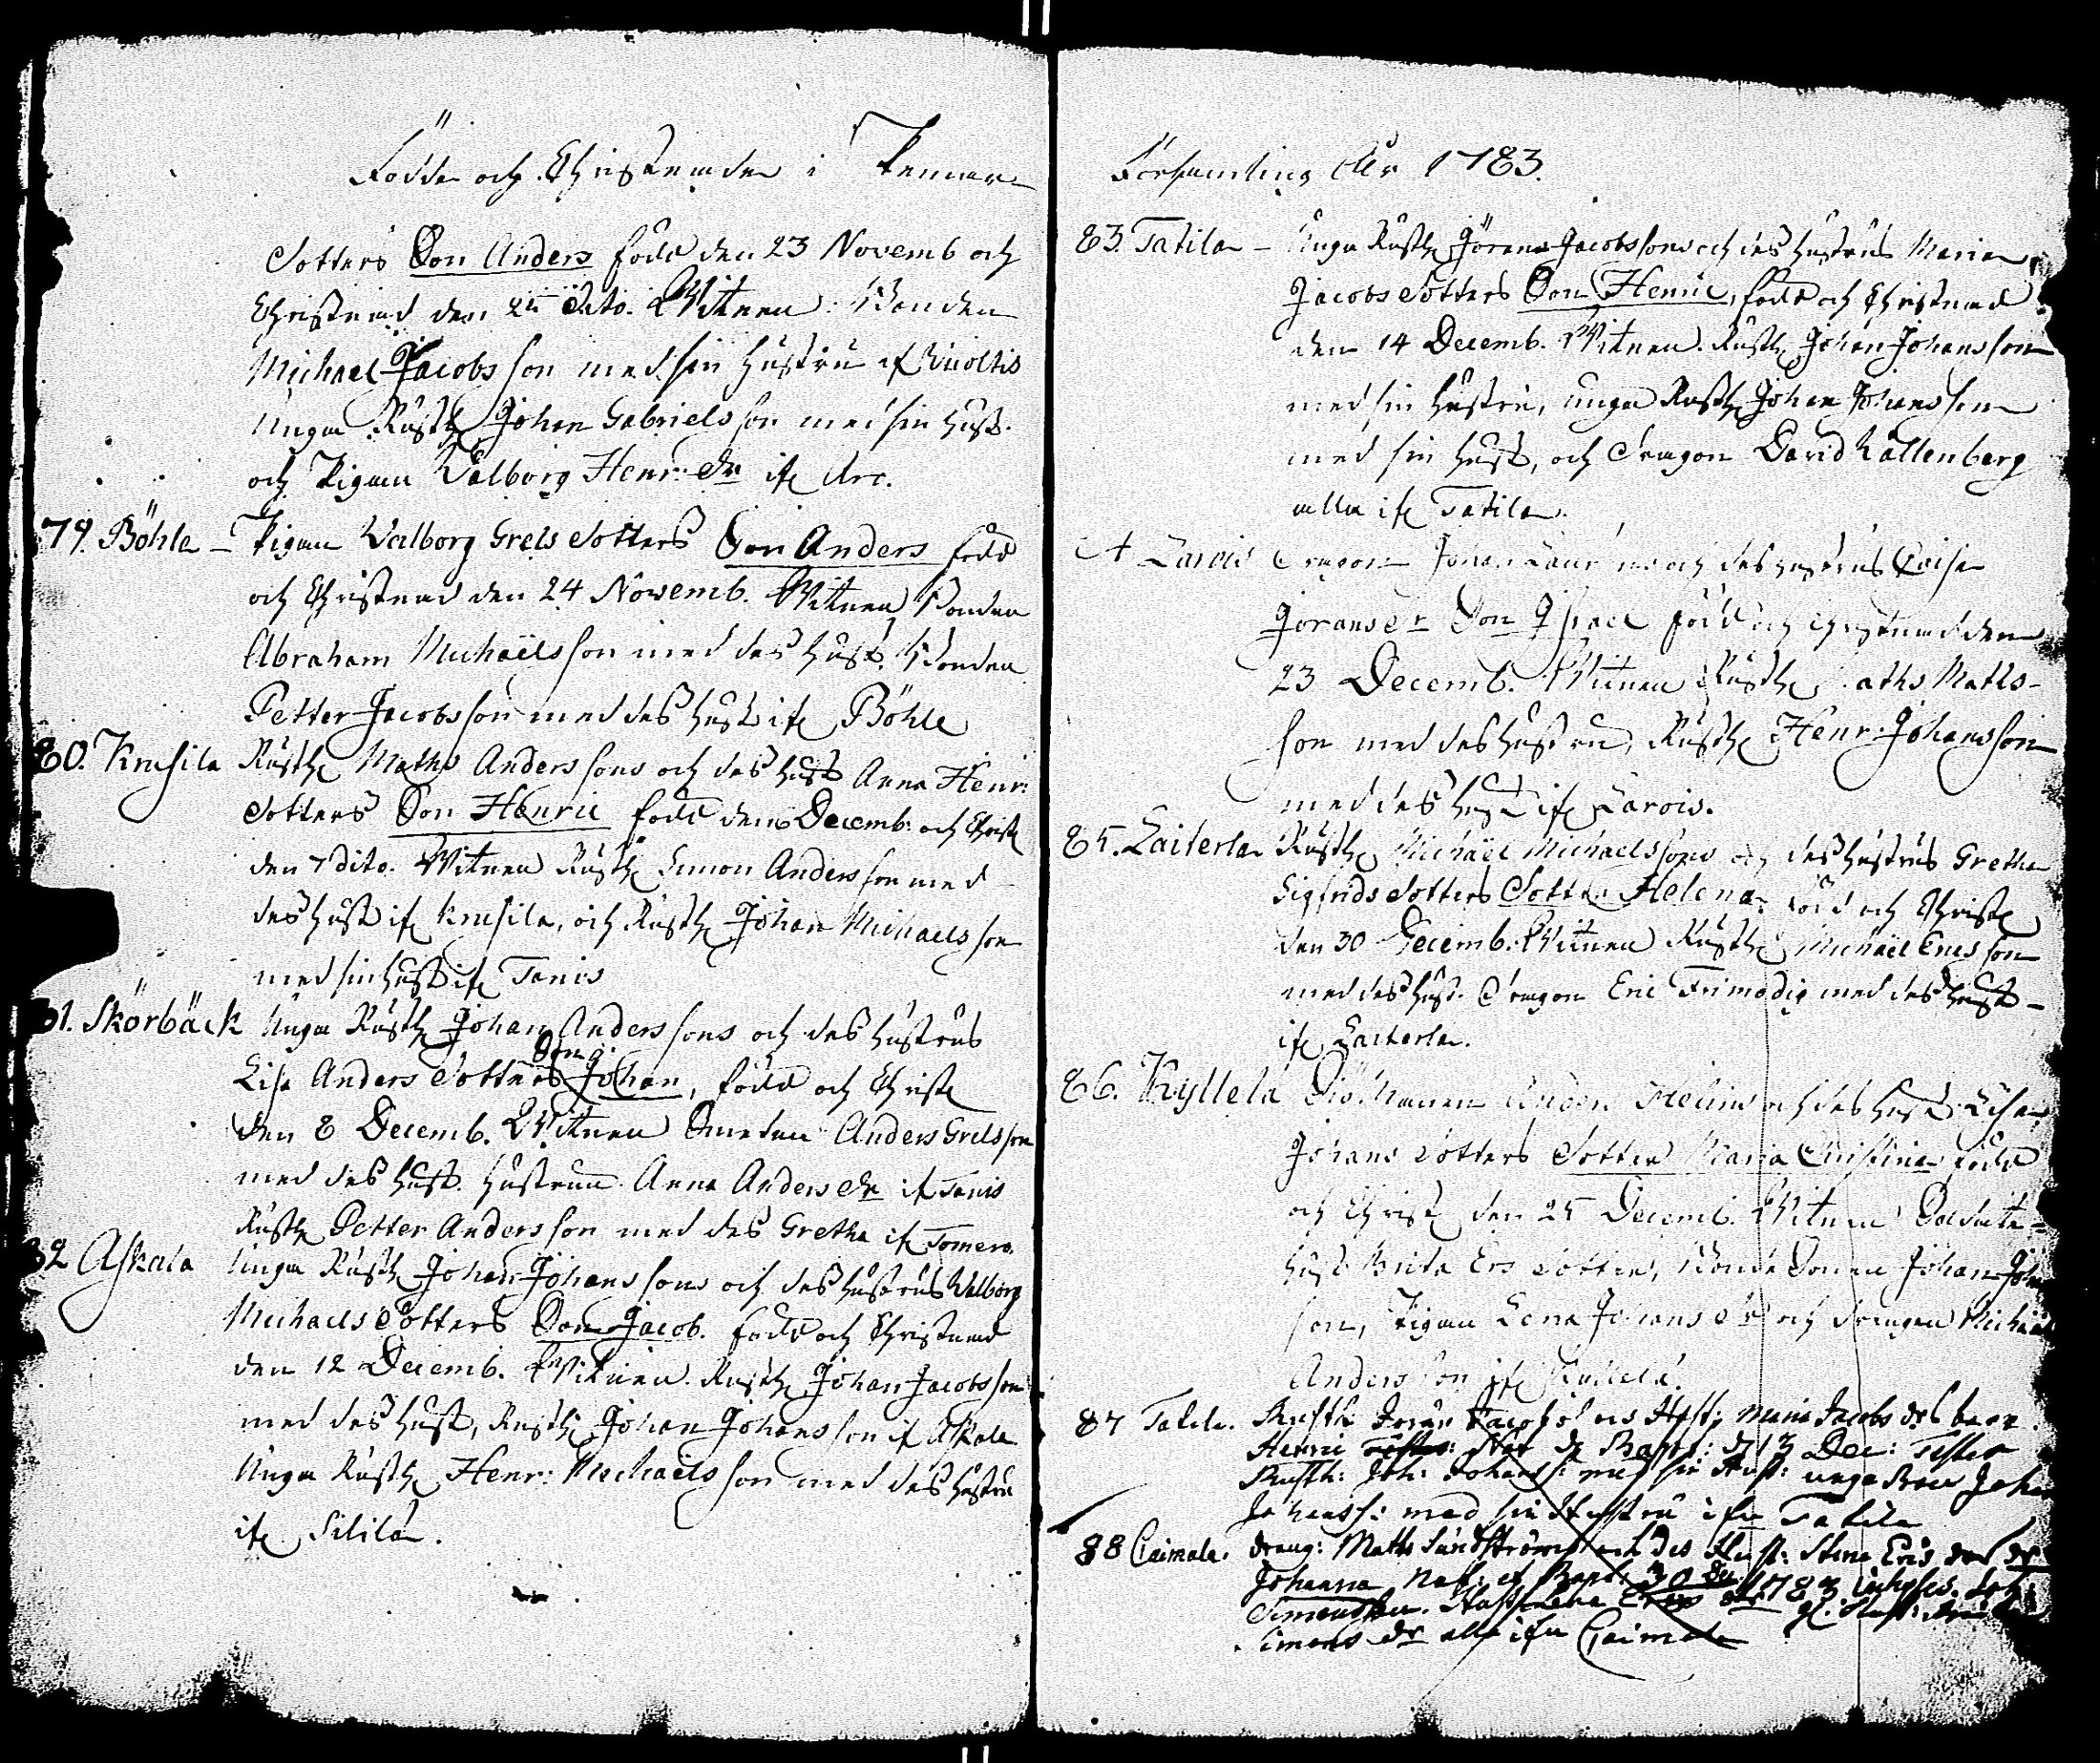 Födde och Christnade i Pemar
dotters Son Anders född den 23 Novemb och
Christnad den 25 dito. Wittnen: Bonden
Michael Jacobsson med sin hustru if
Unga Rusth Johan Gabrielsson med sin hust.
och Pigan Walborg Henr: dr if Are.
79. Böhle – Pigan Walborg Grelsdotters Son Anders född
och Christnad den 24 Novemb. Wittnen Bonden
Abraham Michaëlsson med des hust. Bonden
Petter Jacobsson med des hust if Böhle
80. Krusila Rusth Maths Anderssons och des hust Anna Henr:
dotters Son Henric född den 6 Decemb: och Christ
den 7 dito. Wittnen Rusth Simon Andersson med
des hust if Krusila, och Rusth Johan Michaelsson
med sin hust if Tanis
81. Skörbäck Unga Rusth Johan Anderssons och des hustrus
Son
Lisa Anders dotters Johan, född och Christ
den 8 Decemb. Wittnen Smeden Anders Grelsson
med des hust. hustrun Anna Anders dr if Tanis
Rusth Petter Andersson med des Gretha if
82 Askala Unga Rusth Johan Johanssons och des hustrus Walborg
Michaels dotters Son Jacob. född och Christnad
den 12 Decemb. Wittnen. Rusth Johan Jacobsson
med des hust, Rusth Johan Johansson if Askala
Unga Rusth Henr: Michaelsson med des hustru
if Silila.
Församling Ahr 1783.
83. Tatila – Unga Rusth Jöran Jacobssons och des hustrus Maria
Jacobs dotters Son Henric, född och Christnad
den 14 Decemb. Wittnen. Rusth Johan Johansson
med sin hustru, unga Rusth Johan Johansson
med sin hust, och Dragon David Källenberg
alla if Tatila.
Larois Dragon Johan och des hustrus Caisa
Görans dr Son Israel född och Christnad den
23 Decemb. Wittnen Rusth Maths Matts-
son med des hustru, Rusth Henr: Johansson
med des hust if Larois.
85. Laiterla Rusth Michaël Michaelssons och des hustrus Gretha
Sigfrids dotters Dotter Helena född och Christ
den 30 Decemb. Wittnen Rusth Michaël Ericsson
med des hust. Dragon Eric Frimodig med des hust –
if Laiterla.
86. Kyllela Anders och des hust Lisa
Johans dotters Dotter Maria Christina född
och Christ den 25 Decemb. Wittnen
hust Brita Ers dotter, Bonde Sonen Johan
son, Pigan Lena Johans dr och drengen Michael
Andersson if Kyllela.
87 Tatila. Rusth Jöran Jacobs hust: Maria Jacobs barn
Henric Nat d Bapt: d 13 Dec: Testes
Rusth: Joh: Johanss: med sin Hust: unga Johan
Johanss: med sin Hustru ifrån Tatila
88 Caimala. Drag: Matts Sundströms och des Hust: Stina Erics
Johanna Nat: et Bapt: 30 1783
Simons dr alla ifrån Caimala